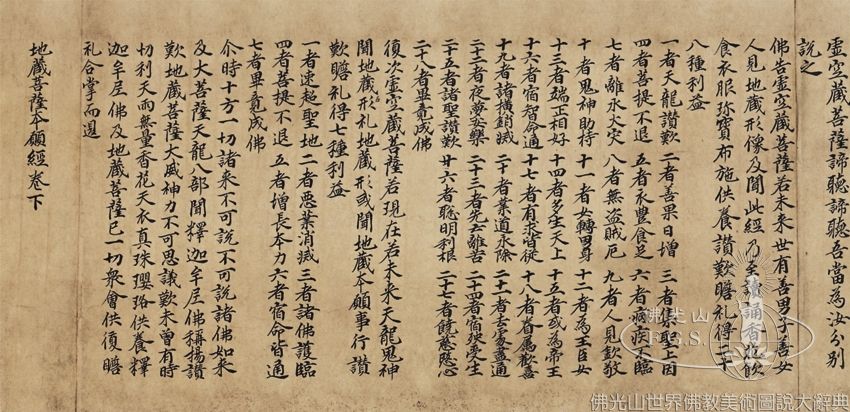 虛空藏菩薩諦聽諦聽吾當為汝分別
說之
佛告虛空藏菩薩若未來世有善男子善女
人見地藏形像及聞此經乃至讀誦香花飲
食衣服珎寶布施供養讃歎瞻礼得二十
八種利益
一者天龍讃歎 二者善果日增 三者集聖上因
四者菩提不退 五者衣豐食足 六者疾不臨
七者離水火灾 八者無盗賊厄 九者人見欽敬
十者鬼神助持 十一者女轉男身 十二者為王臣女
十三者端正相好 十四者多生天上 十五者或為帝王
十六者宿智命通 十七者有求皆從 十八者眷属歡喜
十九者諸橫銷滅 二十者業道永除 二十一者去處盡通
二十二者夜夢安樂 二十三者先亡離苦 二十四者宿殃受生
二十五者諸聖讃歎 廿六者聡明利根 二十七者饒慈愍心
二十八者畢竟成佛
復次虛空藏菩薩若現在若未来天龍鬼神
聞地藏形礼地藏形或聞地藏本願事行讃
歎瞻礼得七種利益
一者速超聖地 二者惡業消滅 三者諸佛護臨
四者菩提不退 五者增長本力 六者宿命皆通
七者畢竟成佛
尒時十方一切諸来不可說不可說諸佛如来
及大菩薩天龍八部聞釋迦牟尼佛稱揚讃
歎地藏菩薩大威神力不可思議歎未曾有時
忉利天雨無量香花天衣真珠瓔珞供養釋
迦牟尼佛及地藏菩薩已一切衆會俱復瞻
礼合掌而退
地藏菩薩本願經卷下
佛光山
F.G.S.
佛光山世界佛教美術圖說大辭典